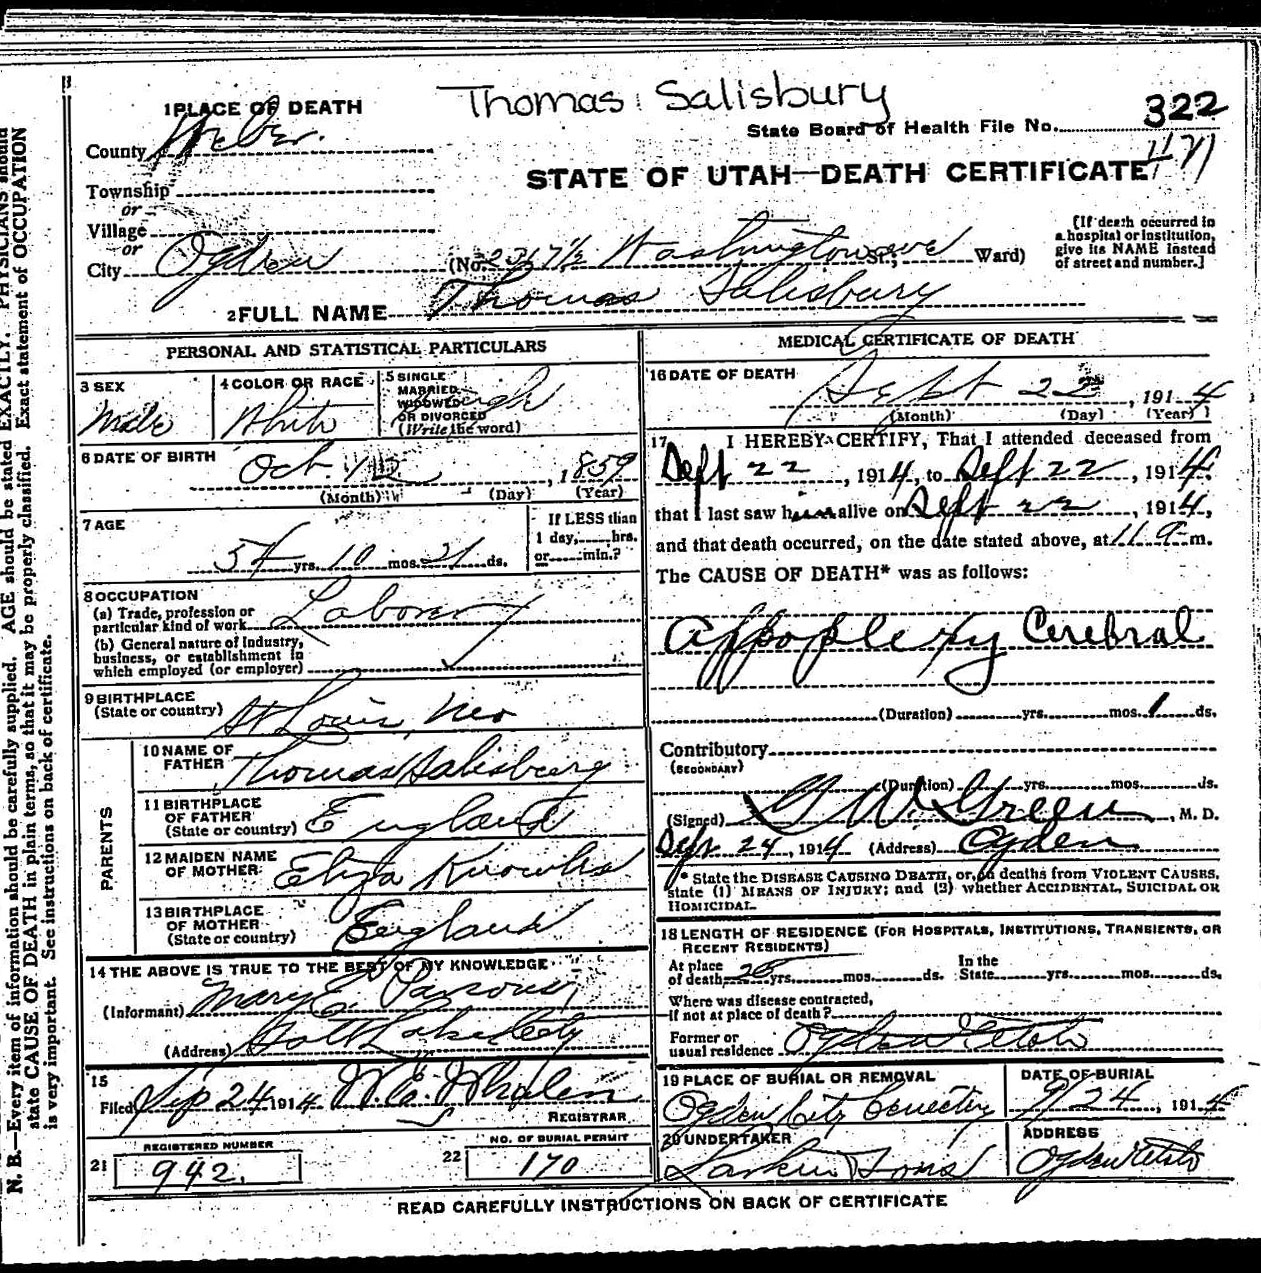 Thomas Salisbury
1 PLACE OF DEATH
322
State Board of Health File No.
471
County Weber
STATE OF UTAH—DEATH CERTIFICATE
Township
or
Village
or
City Ogden (No. 2317½ Washington ave St.; Ward)
[If death occurred in a hospital or institution, give its NAME instead of street and number.]
2 FULL NAME Thomas Salisbury
PERSONAL AND STATISTICAL PARTICULARS
3 SEX
Male
4 COLOR OR RACE
White
5 SINGLE
MARRIED
WIDOWED
OR DIVORCED
(Write the word)
Single
6 DATE OF BIRTH
Oct. 12, 1859
(Month) (Day) (Year)
7 AGE
54 yrs. 10 mos. 21 ds.
If LESS than
1 day, hrs.
or min.?
8 OCCUPATION
(a) Trade, profession or
particular kind of work Laborer
(b) General nature of industry,
business, or establishment in
which employed (or employer)
9 BIRTHPLACE
(State or country) St Louis, Mo
PARENTS
10 NAME OF
FATHER Thomas Salisbury
11 BIRTHPLACE
OF FATHER
(State or country) England
12 MAIDEN NAME
OF MOTHER Eliza Knowles
13 BIRTHPLACE
OF MOTHER
(State or country) England
14 THE ABOVE IS TRUE TO THE BEST OF MY KNOWLEDGE
(Informant) Mary E. Parsons
(Address) Salt Lake City
15
Filed Sep 24 1914 W. E. Whalen
REGISTRAR
REGISTERED NUMBER
21 942.
NO. OF BURIAL PERMIT
22 170
MEDICAL CERTIFICATE OF DEATH
16 DATE OF DEATH
Sept 22, 1914
(Month) (Day) (Year)
17 I HEREBY CERTIFY, That I attended deceased from
Sept 22, 1914, to Sept 22, 1914.
that I last saw him alive on Sept 22, 1914,
and that death occurred, on the date stated above, at 11 a m.
The CAUSE OF DEATH* was as follows:
Appoplexy Cerebral
(Duration) yrs. mos. 1 ds.
Contributory
(SECONDARY)
(Duration) yrs. mos. ds.
(Signed) G W. Green, M. D.
Sept 24, 1914 (Address) Ogden
* State the DISEASE CAUSING DEATH, or, in deaths from VIOLENT CAUSES,
state (1) MEANS OF INJURY; and (2) whether ACCIDENTAL, SUICIDAL OR
HOMICIDAL.
18 LENGTH OF RESIDENCE (FOR HOSPITALS, INSTITUTIONS, TRANSIENTS, OR
RECENT RESIDENTS)
At place
of death yrs. mos. ds.
In the
State yrs. mos. ds.
Where was disease contracted,
if not at place of death?
Former or
usual residence Ogden Utah
19 PLACE OF BURIAL OR REMOVAL
Ogden City Cemetery
DATE OF BURIAL
9/24, 1914
20 UNDERTAKER
Larkin & Sons
ADDRESS
Ogden Utah
READ CAREFULLY INSTRUCTIONS ON BACK OF CERTIFICATE
N. B.—Every item of information should be carefully supplied. AGE should be stated EXACTLY. PHYSICIANS should
state CAUSE OF DEATH in plain terms, so that it may be properly classified. Exact statement of OCCUPATION
is very important. See instructions on back of certificate.